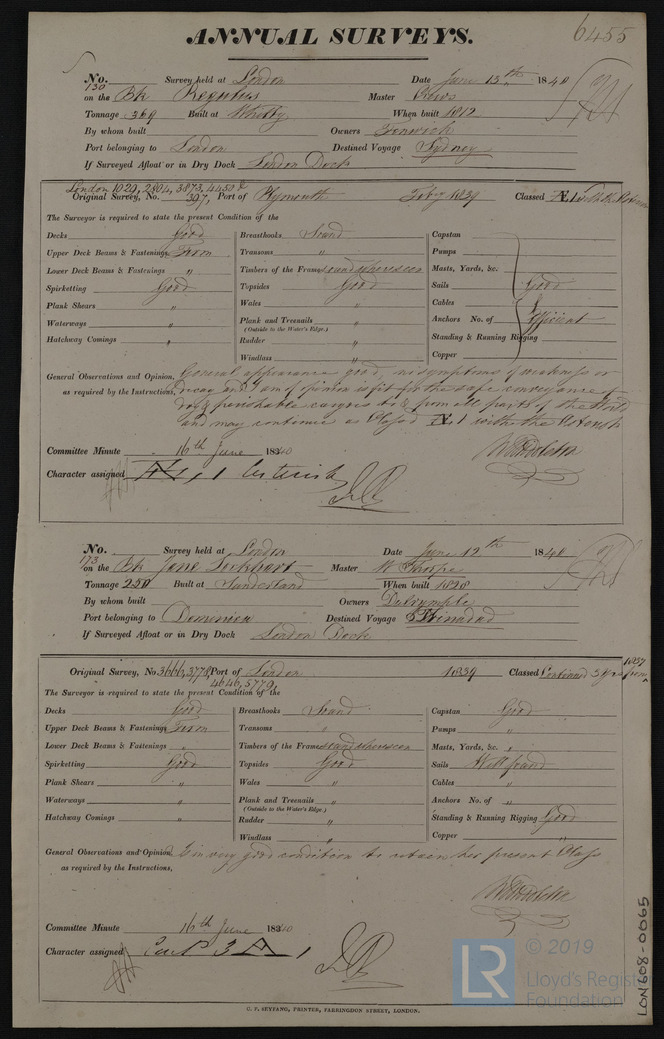 ANNUAL SURVEYS.
6455
No. 130 Survey held at London Date June 15th 1840
on the Bk Regulus Master Crews
Tonnage 369 Built at Whitby When built 1812
By whom built Owners Fenwick
Port belonging to London Destined Voyage Sydney
If Surveyed Afloat or in Dry Dock London Dock
London 1029, 2804, 3873, 4450 &
Original Survey, No. 397, Port of Plymouth Feby 1839 Classed Æ1 with the
The Surveyor is required to state the present Condition of the
Decks Good Breasthooks Sound Capstan
Upper Deck Beams & Fastenings Firm Transoms " Pumps
Lower Deck Beams & Fastenings " Timbers of the Frame sound where seen Masts, Yards, &c.
Spirketting Good Topsides Good Sails Good
Plank Shears " Wales " Cables &
Waterways " Plank and Treenails " Anchors No. of Efficient
(Outside to the Water's Edge.)
Hatchway Comings " Rudder " Standing & Running Rigging
Windlass " Copper
General Observations and Opinion, General appearance good, no symptoms of weakness or
as required by the Instructions, decay and I am of opinion is fit for the safe conveyance of
dry & perishable cargoes to & from all parts of the World
and may continue as Classed Æ 1 with the Asterisk
Committee Minute 16th June 1840
Character assigned Æ, 1 Asterisk
No. 173 Survey held at London Date June 12th 1840
on the Bk Jane Lockhart Master W Thorpe
Tonnage 250 Built at Sunderland When built 1828
By whom built Owners Dalrymple
Port belonging to Dominica Destined Voyage Trinadad
If Surveyed Afloat or in Dry Dock London Dock
Original Survey, No. 3666, 3778, Port of London 1839 Classed Continued 3 Yrs from 1837
4646, 5779,
The Surveyor is required to state the present Condition of the
Decks Good Breasthooks Sound Capstan Good
Upper Deck Beams & Fastenings Firm Transoms " Pumps "
Lower Deck Beams & Fastenings " Timbers of the Frame sound where seen Masts, Yards, &c. "
Spirketting Good Topsides Good Sails Well found
Plank Shears " Wales " Cables "
Waterways " Plank and Treenails " Anchors No. of "
(Outside to the Water's Edge.)
Hatchway Comings " Rudder " Standing & Running Rigging Good
Windlass " Copper "
General Observations and Opinion, Is in very good condition to retain her present Class
as required by the Instructions,
Committee Minute 16th June 1840
Character assigned Cont 3 A 1
C. F. SEYFANG, PRINTER, FARRINGDON STREET, LONDON.
LON608-0065
LR © 2019
Lloyd's Register
Foundation